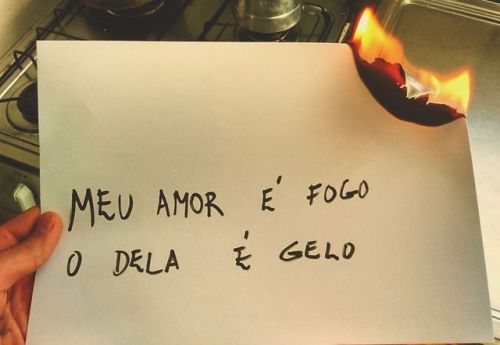 MEU AMOR É FOGO
O DELA É GELO